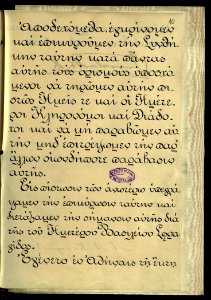 Ἀποδεχόμεθα, ἐγκρίνομεν
καὶ ἐπικυροῦμεν τὴν Συνθή-
κην ταύτην κατὰ πάντας
αὐτῆς τοὺς ὁρισμοὺς ὑποσχό-
μενοι νὰ τηρῶμεν αὐτὴν πι-
στῶς Ἡμεῖς τε καὶ οἱ Ἡμέτε-
ροι Κληρονόμοι καὶ Διάδο-
χοι καὶ νὰ μὴ παραβῶμεν αὐ-
τὴν μηδ' ἐπιτρέψωμεν τὴν παρ'
ἄλλων οἱανδήποτε παράβασιν
αὐτῆς.
Εἰς πίστωσιν τῶν ἀνωτέρω ὑπεγρά-
ψαμεν τὴν ἐπικύρωσιν ταύτην καὶ
διετάξαμεν τὴν σήμανσιν αὐτῆς διὰ
τῆς τοῦ Ἡμετέρου Βασιλείου Σφρα-
γῖδος.
Ἐγένετο ἐν Ἀθήναις τῇ